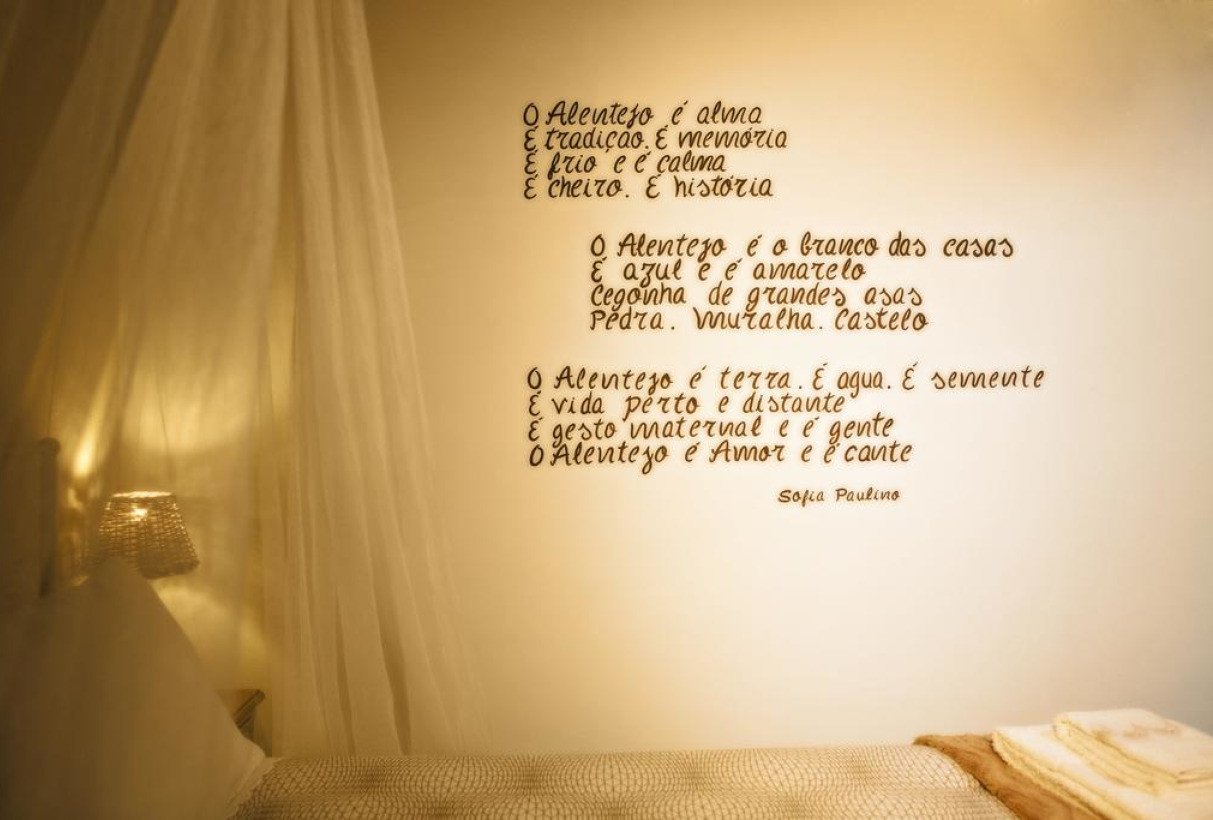 O Alentejo é alma
É tradição. É memória
É frio e é calma
É cheiro. É história
O Alentejo é o branco das casas
É azul e é amarelo
Cegonha de grandes asas
Pedra. Muralha. Castelo
O Alentejo é terra. É agua. É semente
É vida perto e distante
É gesto maternal e é gente
O Alentejo é Amor e é cante
Sofia Paulino